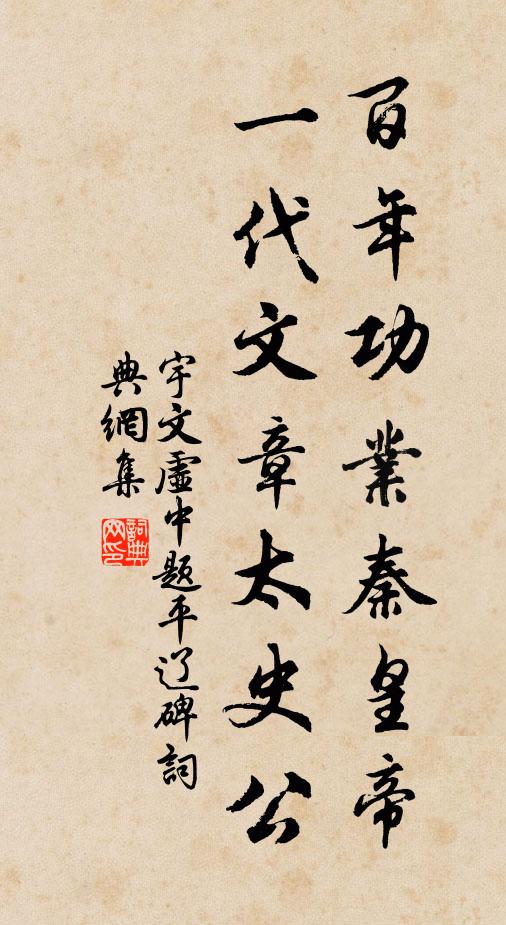 百年功業秦皇帝
一代文章太史公
宇文虛中題平辽碑詞
典網集
詞典
网印